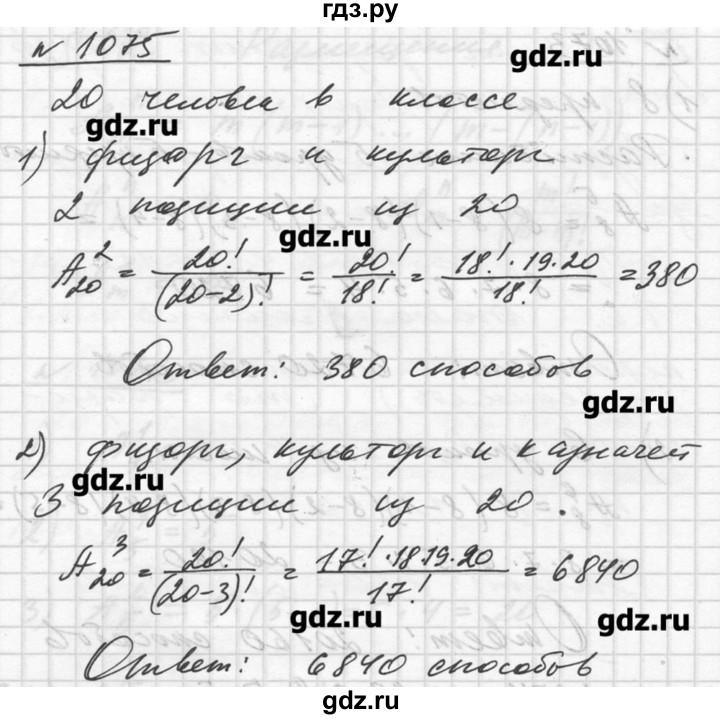 гдз.ру
№ 1075
gdz.ru
20 человек в классе
gdz.ru
1) физорг и культорг
2 позиции из 20
gdz.ru
A₂₀² = 20!/(20-2)! = 20!/18! = 18!·19·20/18! = 380
Ответ: 380 способов
gdz.ru
2) физорг, культорг и казначей
gdz.ru
3 позиции из 20.
A₂₀³ = 20!/(20-3)! = 17!·18·19·20/17! = 6840
gdz.ru
gdz.ru
Ответ: 6840 способов
gdz.ru